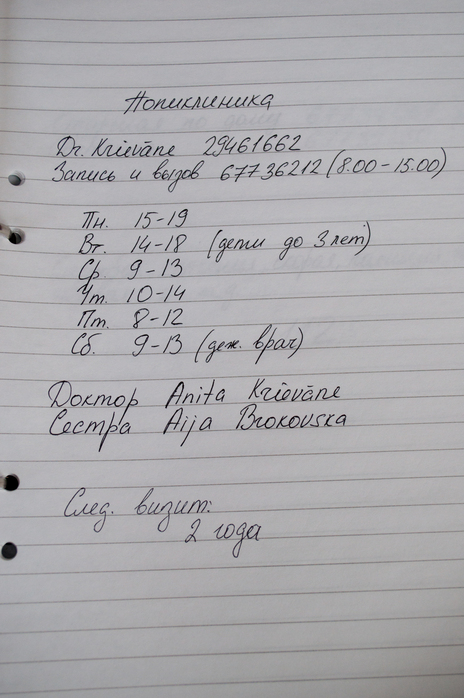 Поликлиника
Dr. Krievāne 29461662
Запись и вызов 67736212 (8.00-15.00)
Пн. 15-19
Вт. 14-18 (дети до 3 лет)
Ср. 9-13
Чт. 10-14
Пт. 8-12
Сб. 9-13 (деж. врач)
Доктор Anita Krievāne
Сестра Aija Brokovska
След. визит:
2 года